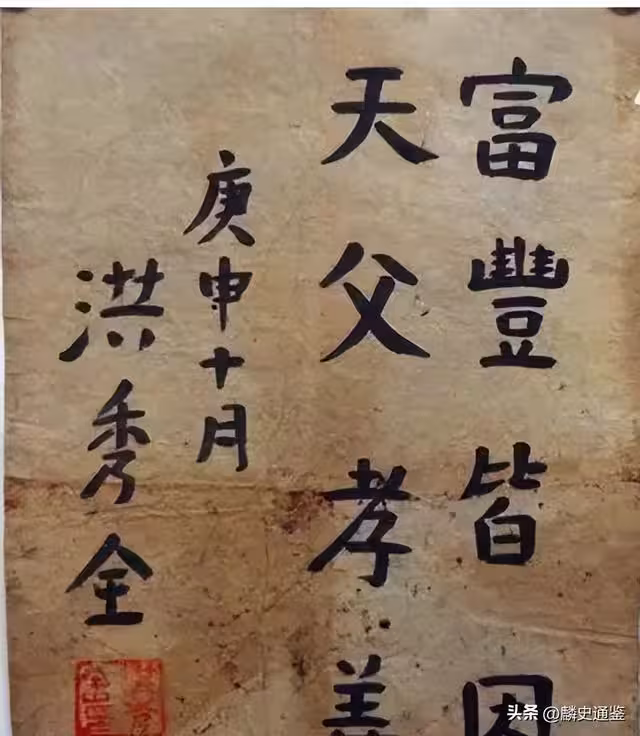 富豐皆因
天父孝善
庚申十月
洪秀全
头条 @麟史通鉴